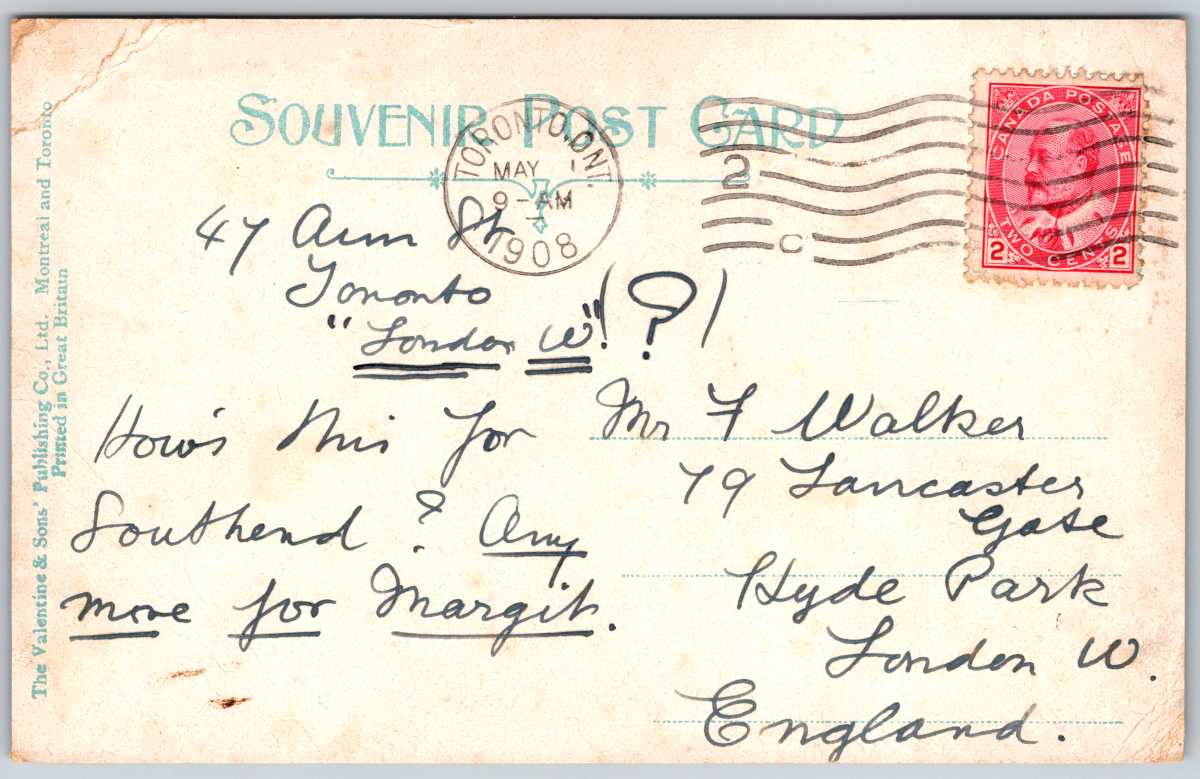 The Valentine & Sons' Publishing Co., Ltd. Montreal and Toronto
Printed in Great Britain
SOUVENIR POST CARD
TORONTO, ONT.
MAY 1
9-AM
1908
2
C
CANADA POSTAGE
2 TWO CENTS 2
47 Ann St
Toronto
"London W" (?)
How's this for
Southend? Any
more for Margit.
Mr F Walker
79 Lancaster
Gate
Hyde Park
London W.
England.